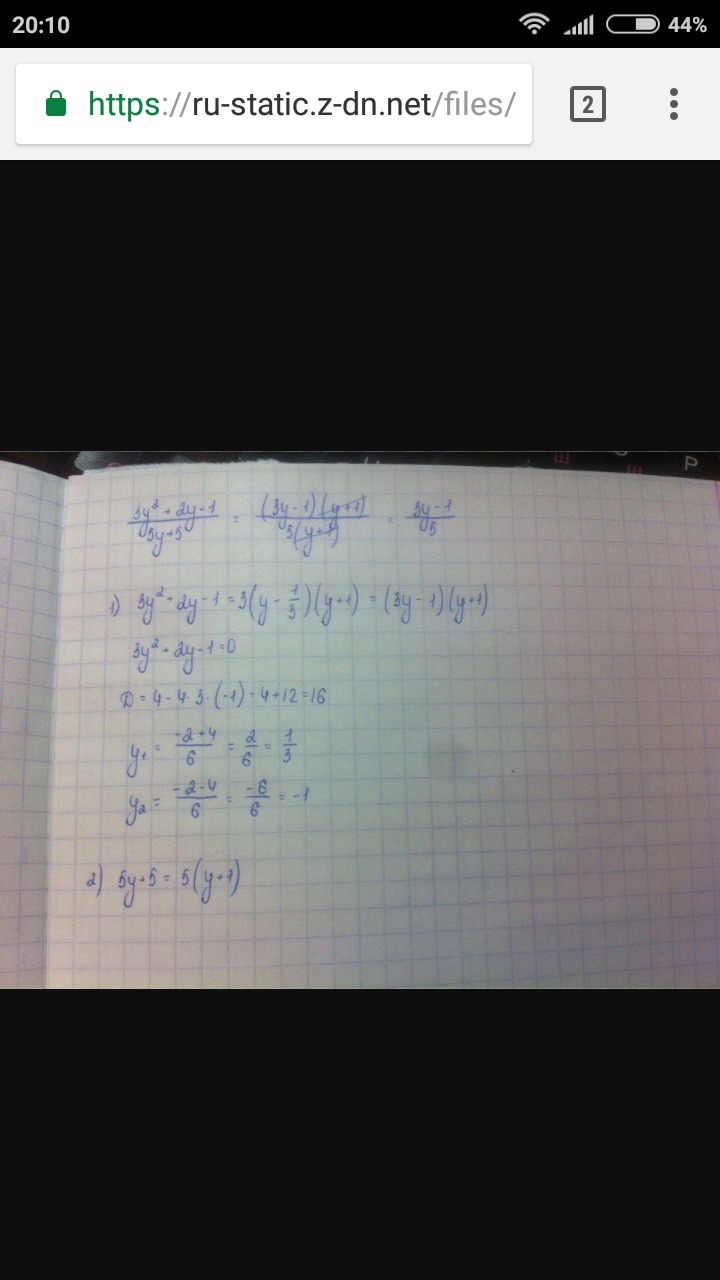 20:10
44%
https://ru-static.z-dn.net/files/
2
Р
3y² + 2y - 1 / 5y + 5 = (3y - 1)(y + 1) / 5(y + 1) = 3y - 1 / 5
1) 3y² + 2y - 1 = 3(y - 1/3)(y + 1) = (3y - 1)(y + 1)
3y² + 2y - 1 = 0
D = 4 - 4 · 3 · (-1) = 4 + 12 = 16
y₁ = -2 + 4 / 6 = 2/6 = 1/3
y₂ = -2 - 4 / 6 = -6/6 = -1
2) 5y + 5 = 5(y + 1)